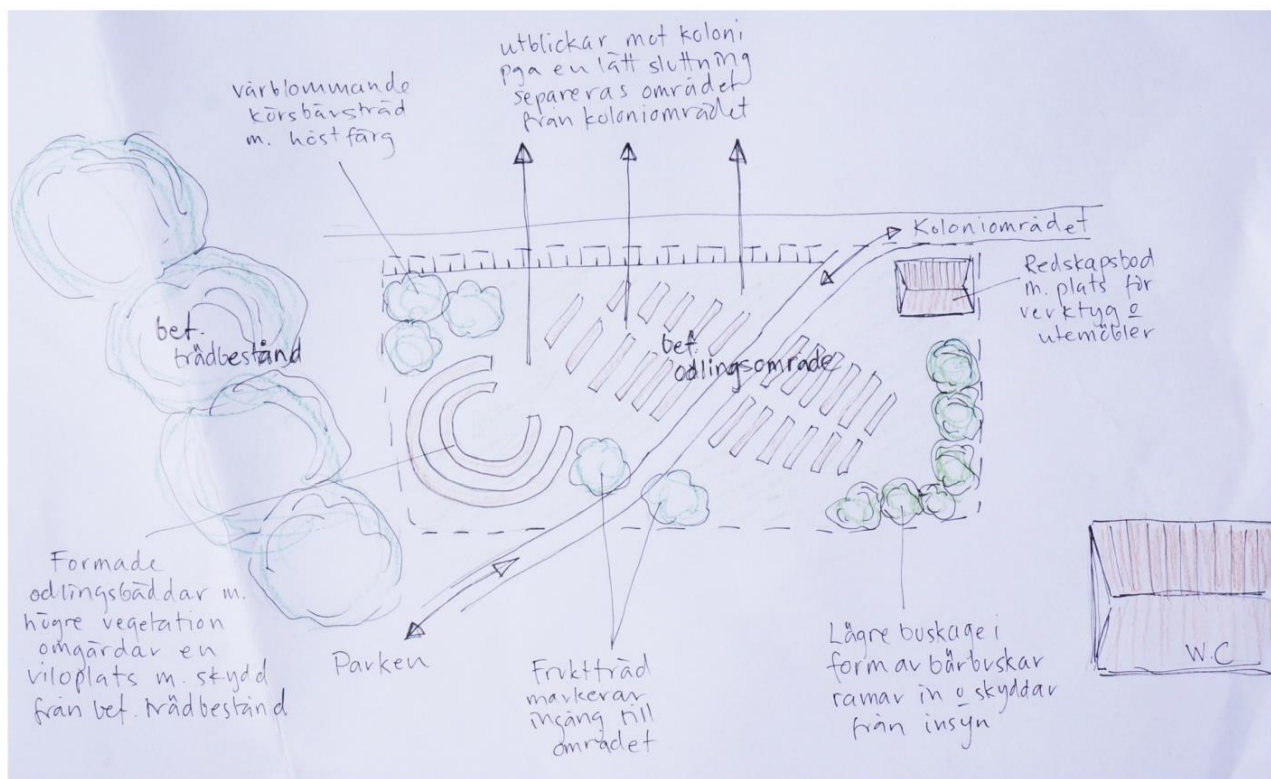 utblickar mot koloni
pga en lätt sluttning
separeras området
från koloniområdet
vårblommande
körsbärsträd
m. höstfärg
Koloniområdet
Redskapsbod
m. plats för
verktyg o
utemöbler
bef.
trädbestånd
bef.
odlingsområde
Formade
odlingsbäddar m.
högre vegetation
omgärdar en
viloplats m. skydd
från bef. trädbestånd
Parken
Fruktträd
markerar
ingång till
området
Lägre buskage i
form av bärbuskar
ramar in o skyddar
från insyn
W.C